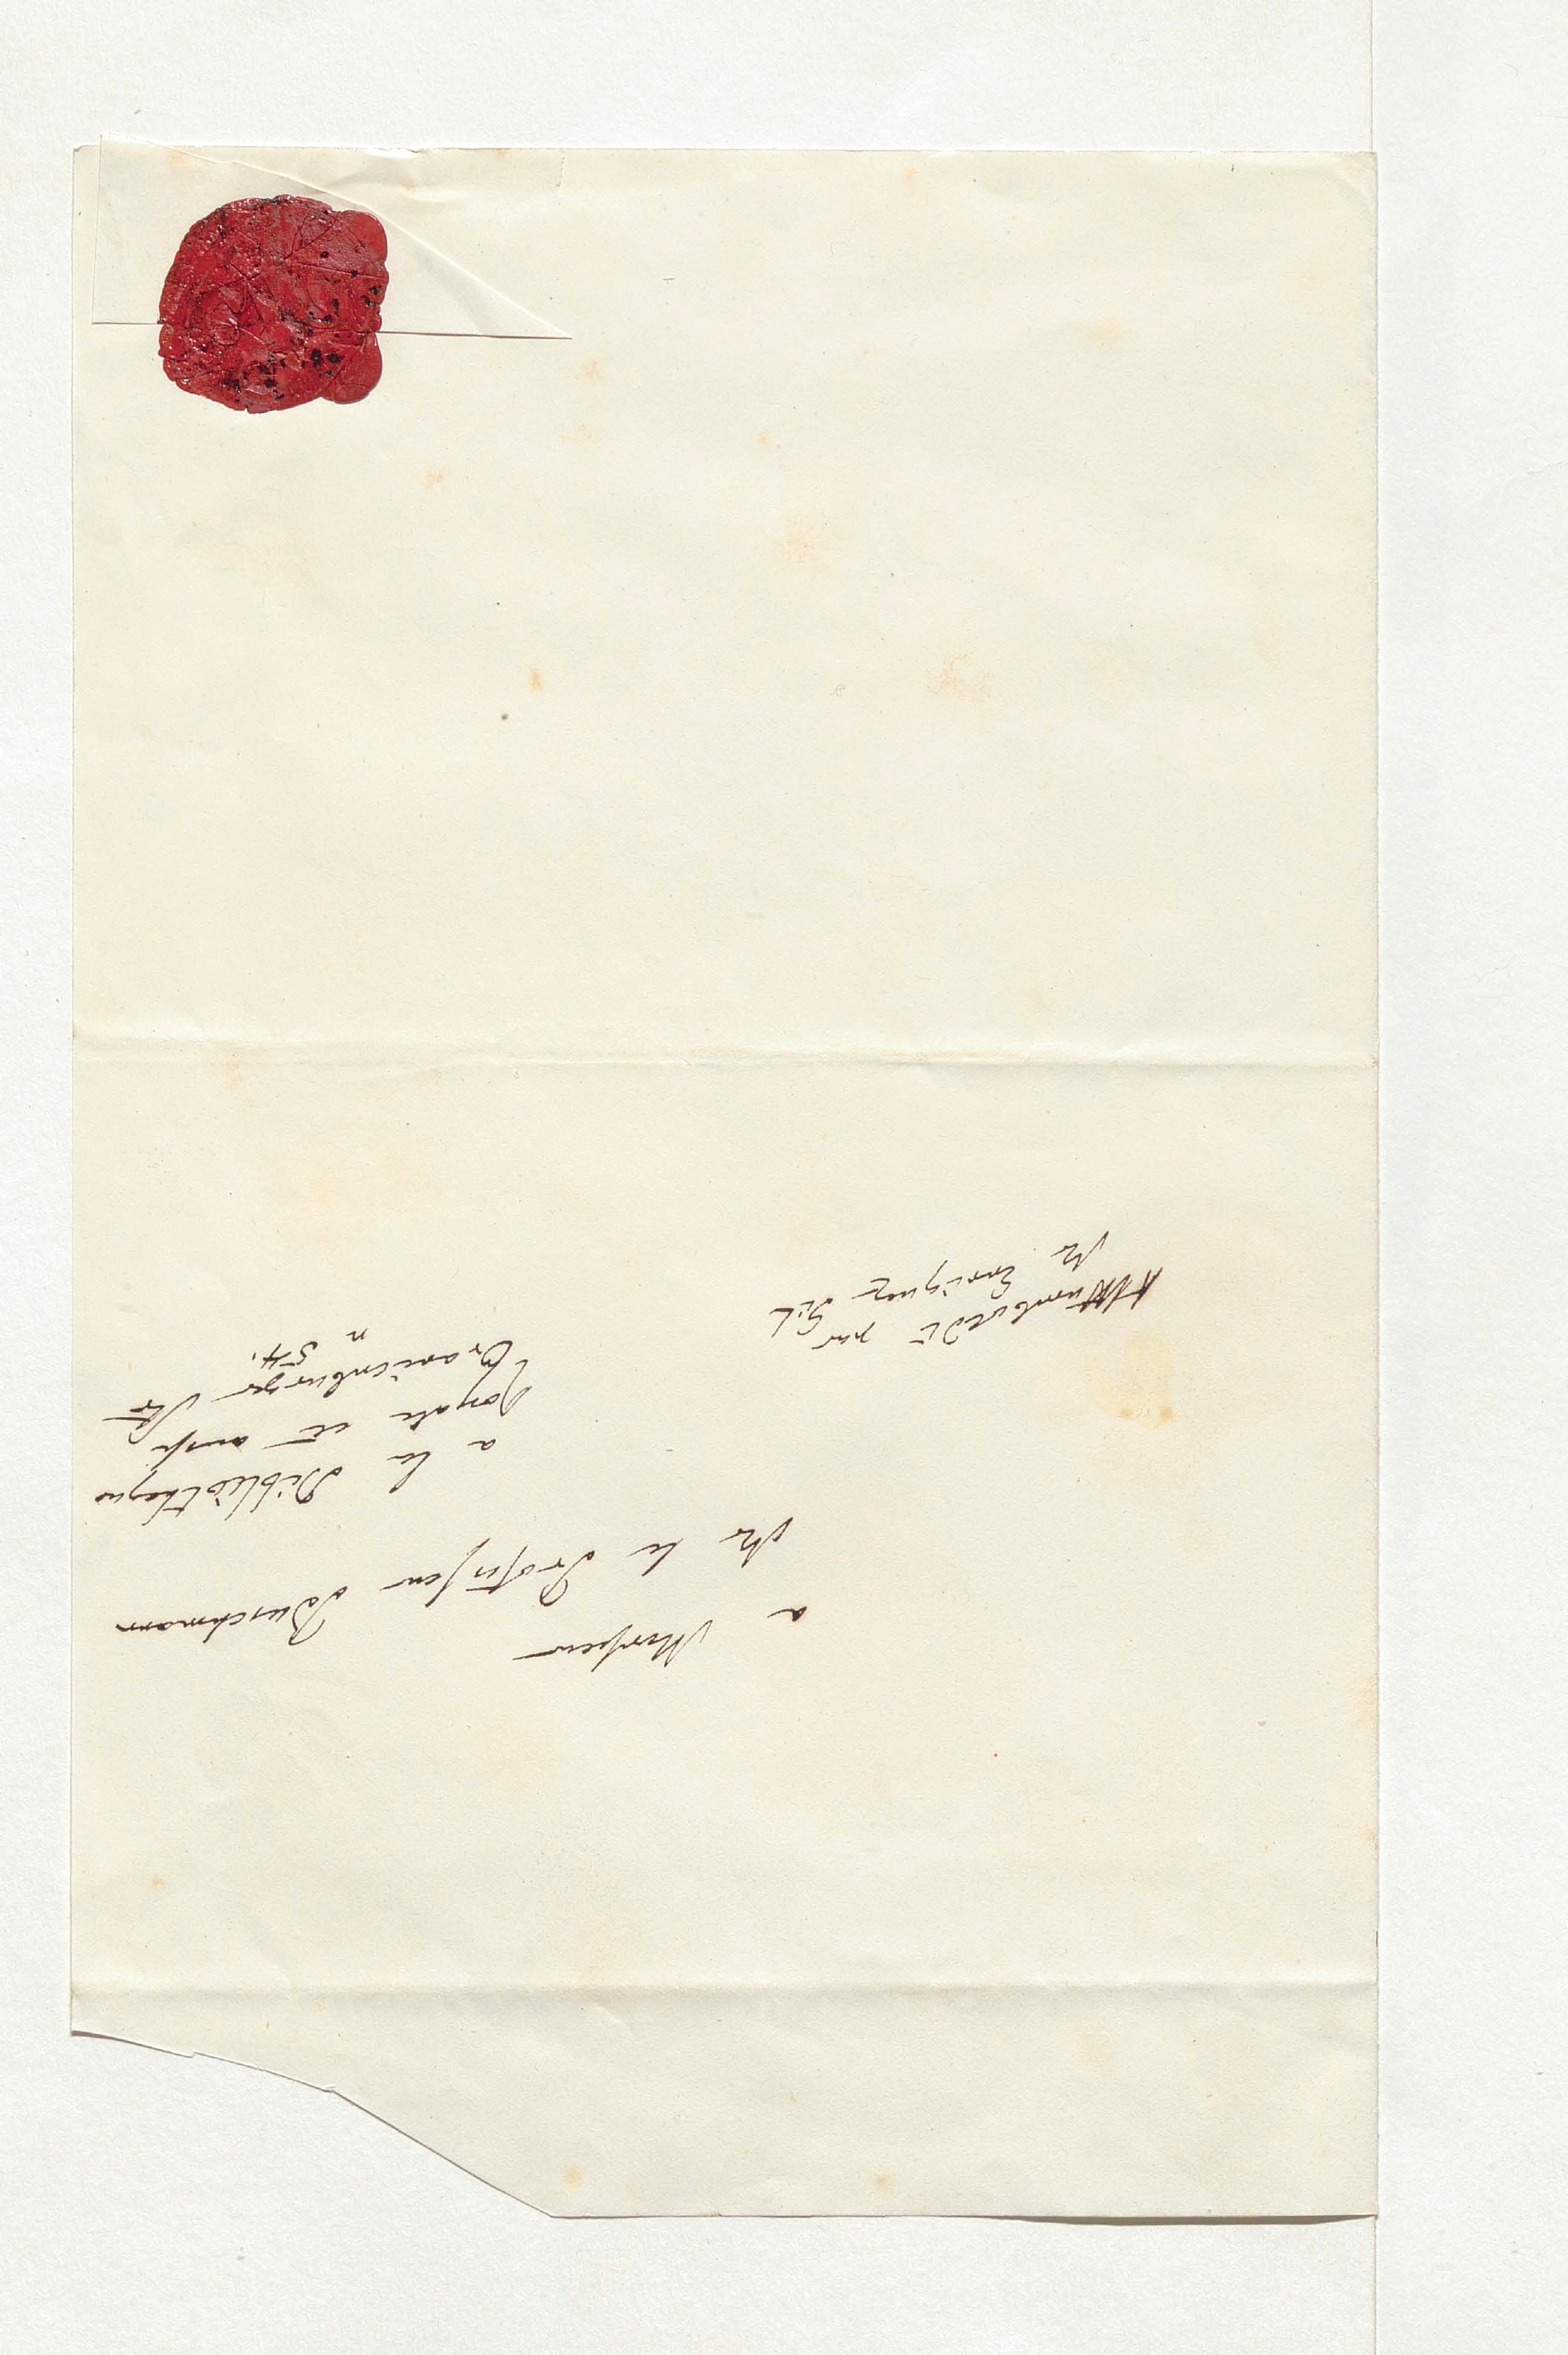 a Monsieur
Mr le Professeur Buschmann
a la Bibliotheque
Royale et aussi
Oranienburger Str
n 54.
AHumboldt par
Mr Enrique Gil